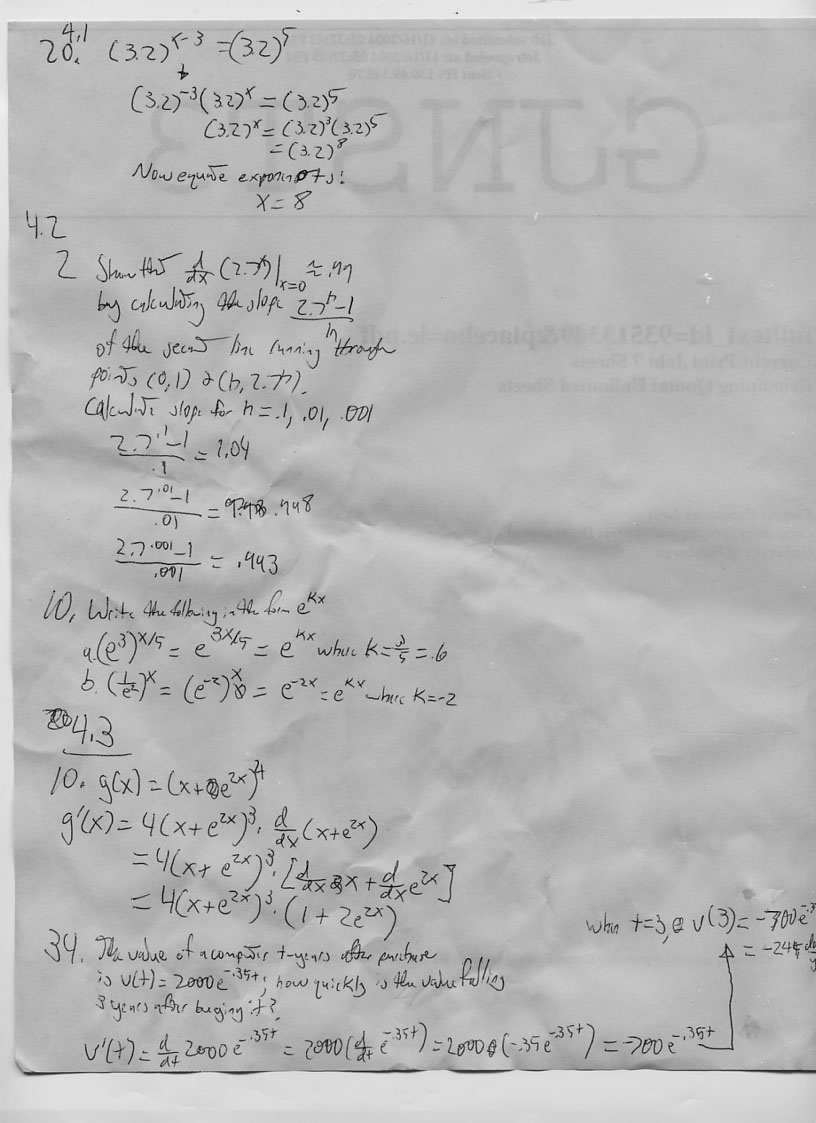 4.1
20. (3.2)^x-3 = (3.2)^5
(3.2)^-3 (3.2)^x = (3.2)^5
(3.2)^x = (3.2)^3 (3.2)^5
= (3.2)^8
Now equate exponents!
x = 8
4.2
2 Show that d/dx (2.7^x)|x=0 ≈ .99
by calculating the slope 2.7^h-1/h
of the secant line running through
points (0,1) & (h, 2.7^h).
Calculate slope for h = .1, .01, .001
2.7^.1-1/.1 = 1.04
2.7^.01-1/.01 = .998
2.7^.001-1/.001 = .993
10. Write the following in the form e^kx
a. (e^3)^x/5 = e^3x/5 = e^kx where k = 3/5 = .6
b. (1/e^2)^x = (e^-2)^x = e^-2x = e^kx where k = -2
4.3
10. g(x) = (x+e^2x)^4
g'(x) = 4(x+e^2x)^3 · d/dx (x+e^2x)
= 4(x+e^2x)^3 · [d/dx x + d/dx e^2x]
= 4(x+e^2x)^3 · (1+2e^2x)
34. The value of a computer t-years after purchase
is v(t) = 2000e^-.35t; how quickly is the value falling
3 years after buying it?
v'(t) = d/dt 2000e^-.35t = 2000(d/dt e^-.35t) = 2000(-.35e^-.35t) = -700e^-.35t
when t=3, v(3) = -700e^-.3
= -245
GUNST
Job submitted at: 11/16/2004 05:37:42 PM
Job spooled at: 11/16/2004 05:37:43 PM
Client IP:
Current Print Job: 7 Sheets
Remaining Quota: Unlimited Sheets